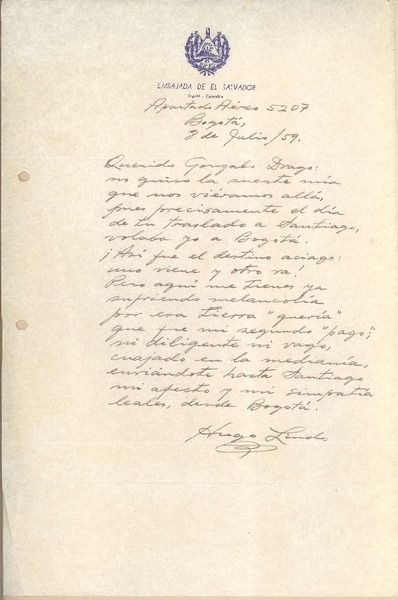 EMBAJADA DE EL SALVADOR
Bogotá - Colombia
Apartado Aéreo 5207
Bogotá,
8 de Julio/59.
Querido Gonzalo Drago:
no quiso la suerte mía
que nos viéramos allá,
pues precisamente el día
de tu traslado a Santiago,
volaba yo a Bogotá.
¡Así fue el destino aciago:
uno viene y otro va!
Pero aquí me tienes ya
sufriendo melancolía
por esa tierra "quería"
que fue mi segundo "pago;"
ni diligente ni vago,
cuajado en la medianía,
enviándote hasta Santiago
mi afecto y mi simpatía
leales, desde Bogotá.
Hugo Lindo